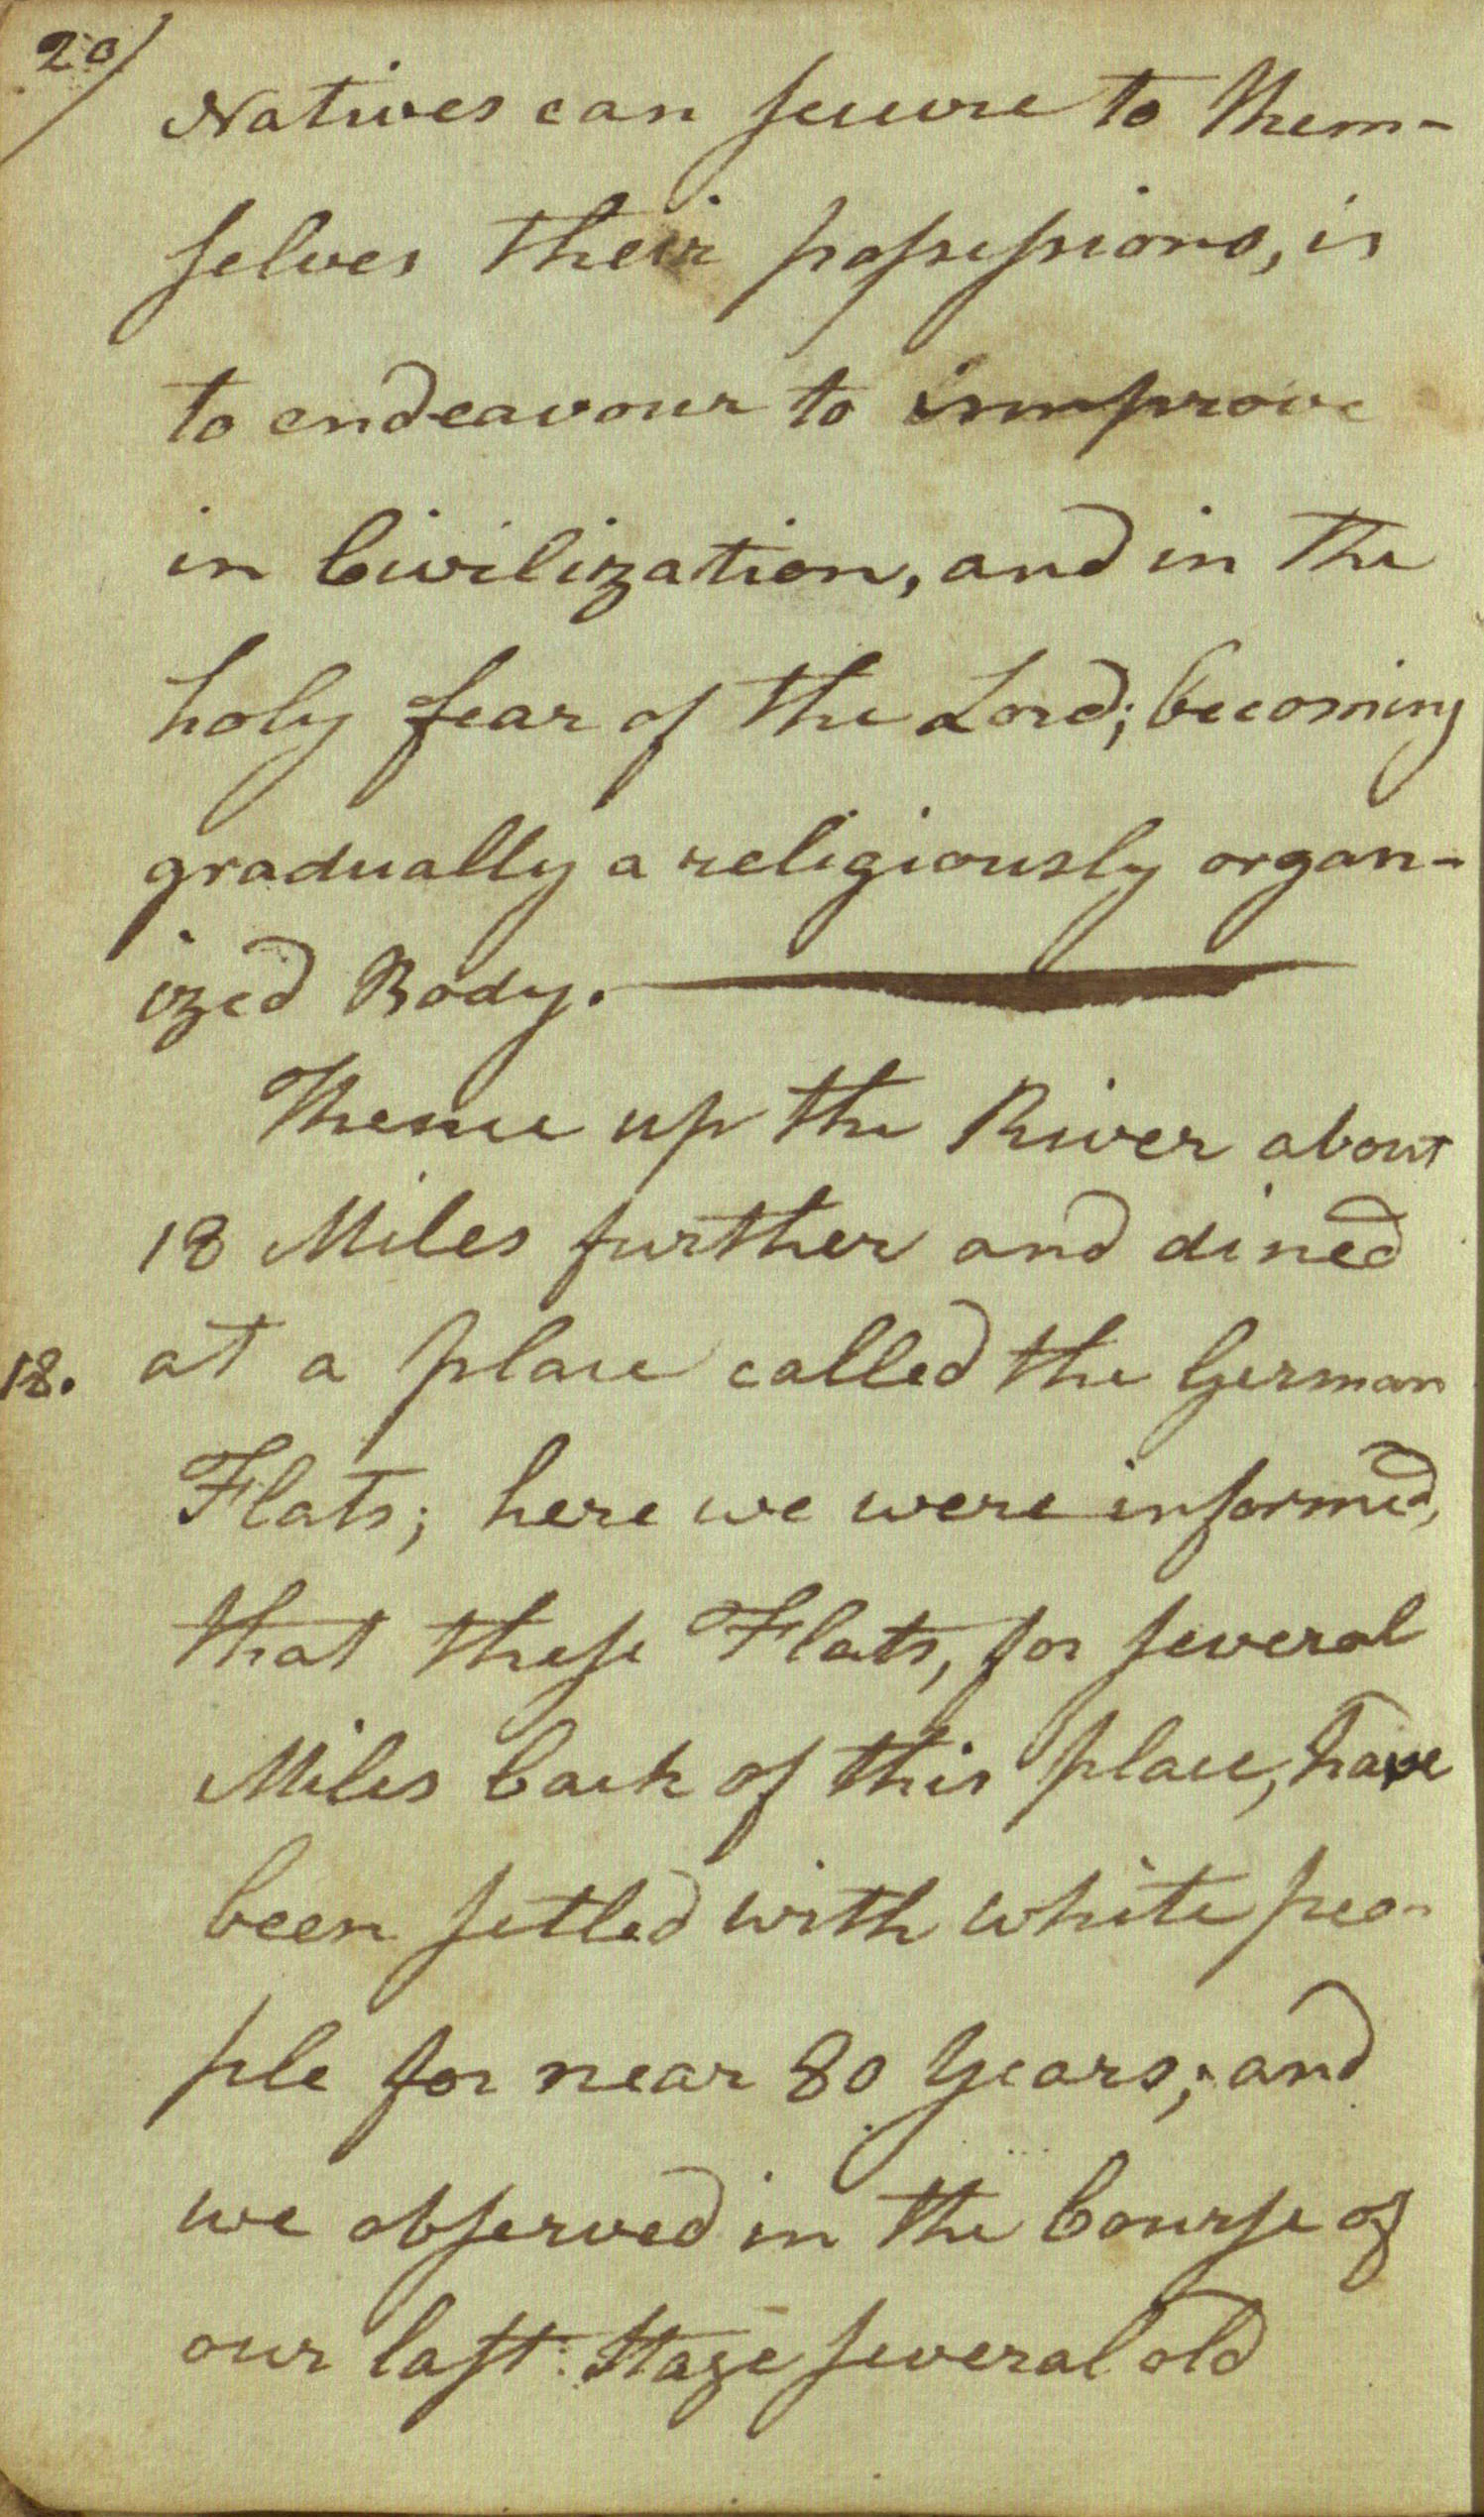 20/
Natives can secure to them-
selves their possessions, is
to endeavour to improve
in Civilization, and in the
holy fear of the Lord; becoming
gradually a religiously organ-
ized Body.
Thence up the River about
18 Miles further and dined
18. at a place called the German
Flats; here we were informed,
that these Flats, for several
Miles back of this place, have
been setled with white peo-
ple for near 80 Years; and
we observed in the Course of
our last Stage several old